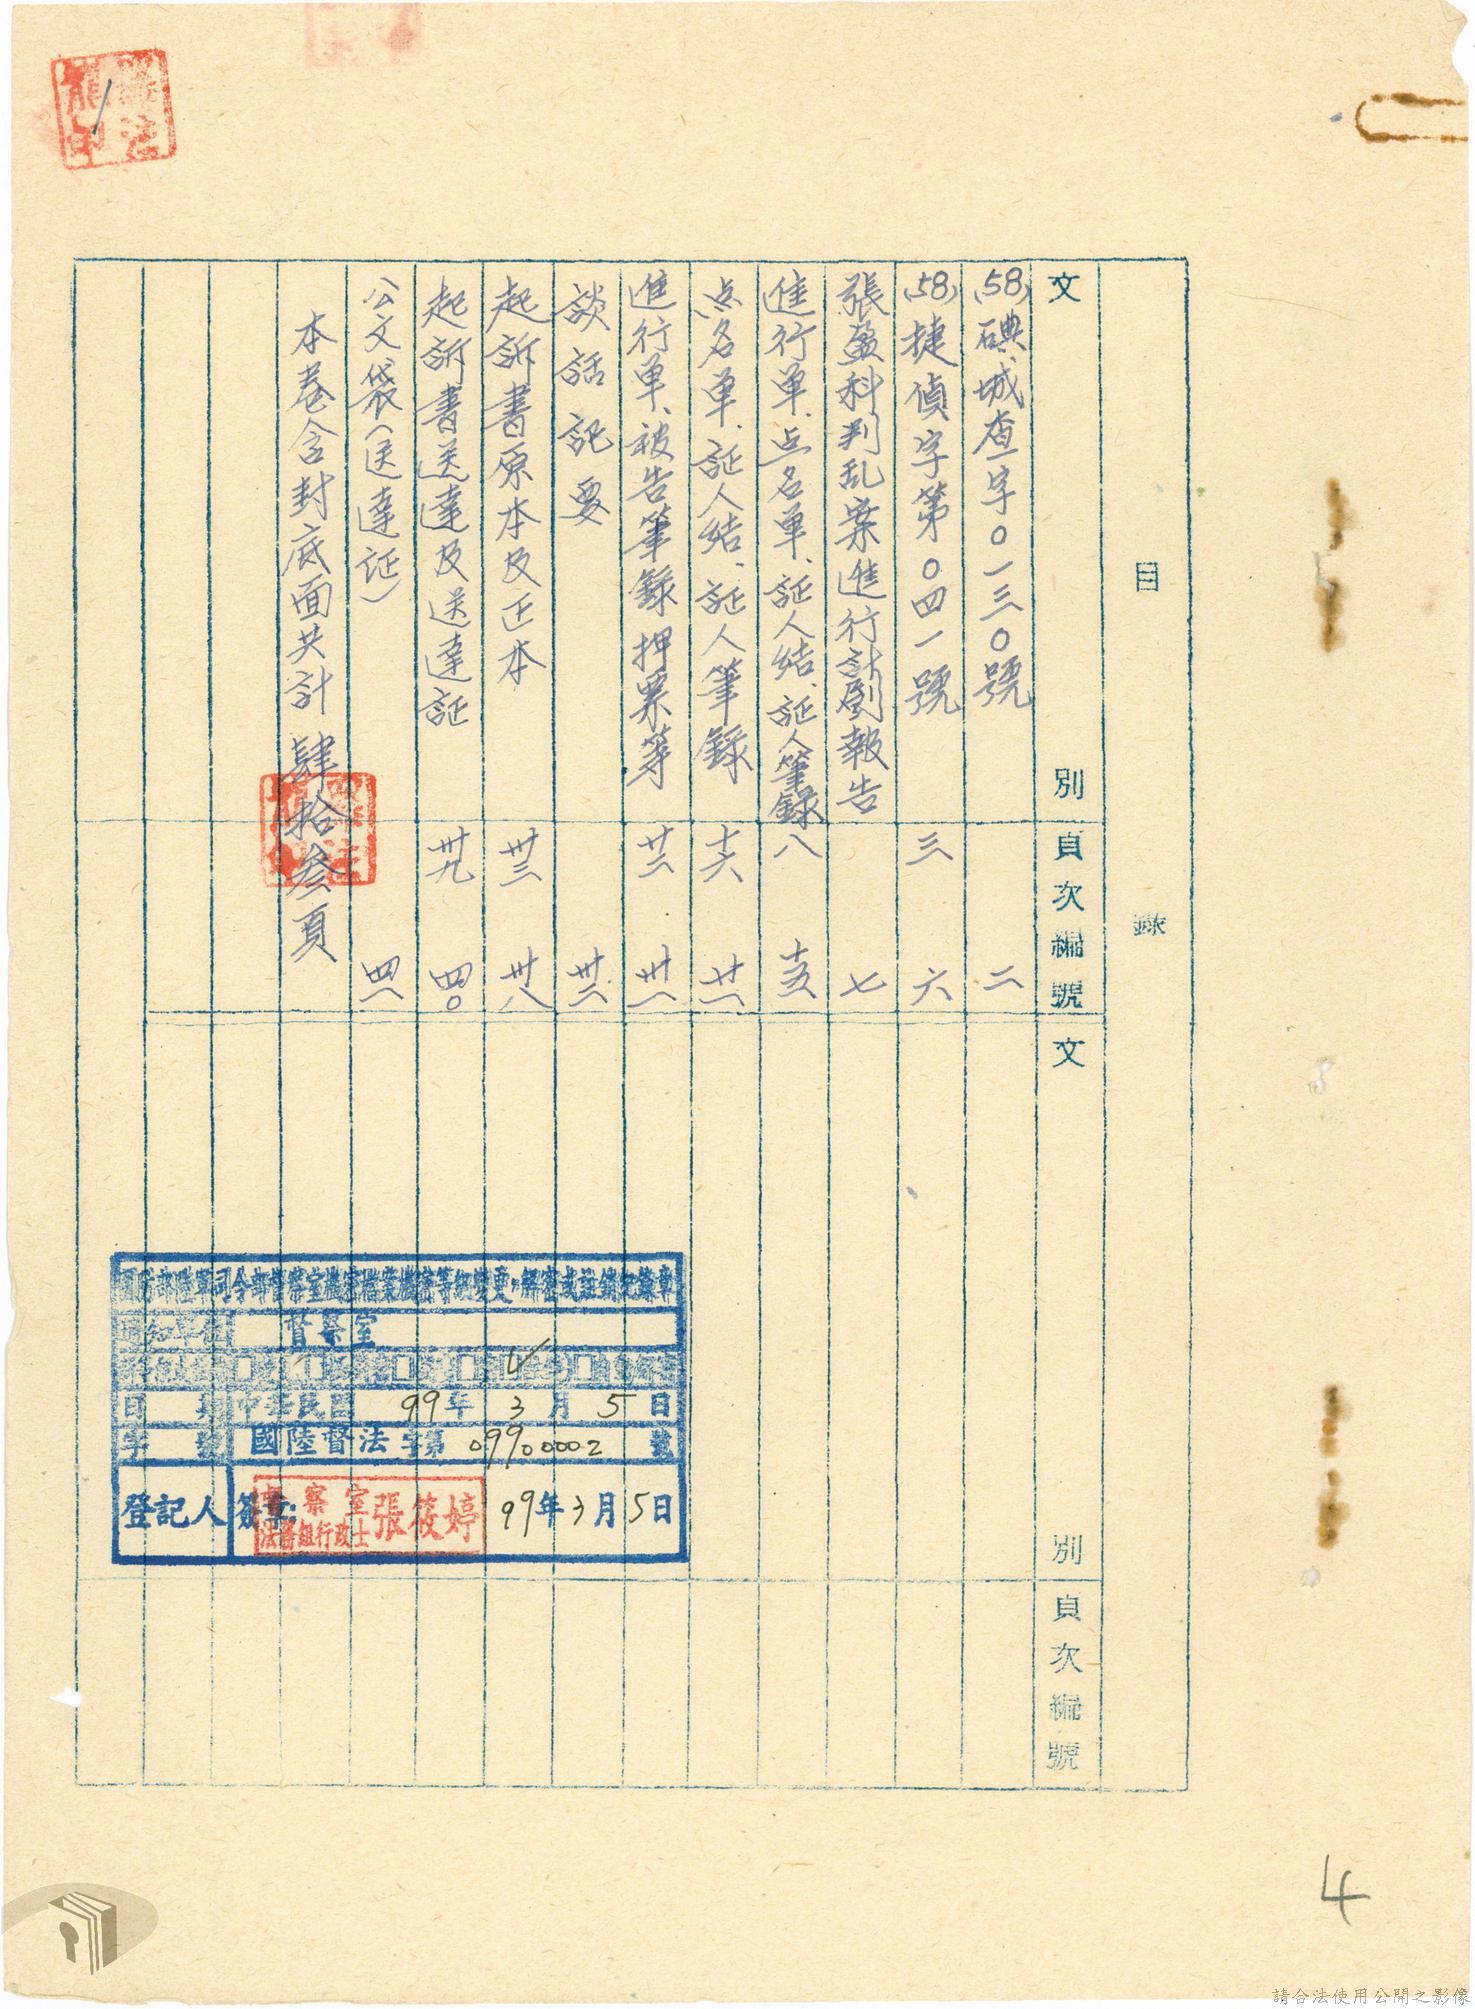 目錄
文別
頁次編號
(58)碘城查字0一三0號
二
(58)捷偵字第0四一號
三
六
張盈科判乱案進行計劃報告
七
進行单、点名單、証人結、証人筆錄
八
十五
点名单、証人結、証人筆錄
十六
廿一
進行单、被告筆錄押票等
廿二
卅一
談話記要
卅二
起訴書原本及正本
卅三
卅八
起訴書送達及送達証
卅九
四0
公文袋(送達証)
四一
本卷含封底面共計肆拾叁頁
文別
頁次編號
國防部陸軍司令部督察室機密檔案機密等級變更、解密或註銷紀錄章
通知單位 督察室
日期 中華民國 99年3月5日
字號 國陸督法字第0990000002號
登記人 簽章: 督察室法務組行政士張筱婷 99年3月5日
4
請合法使用公開之影像